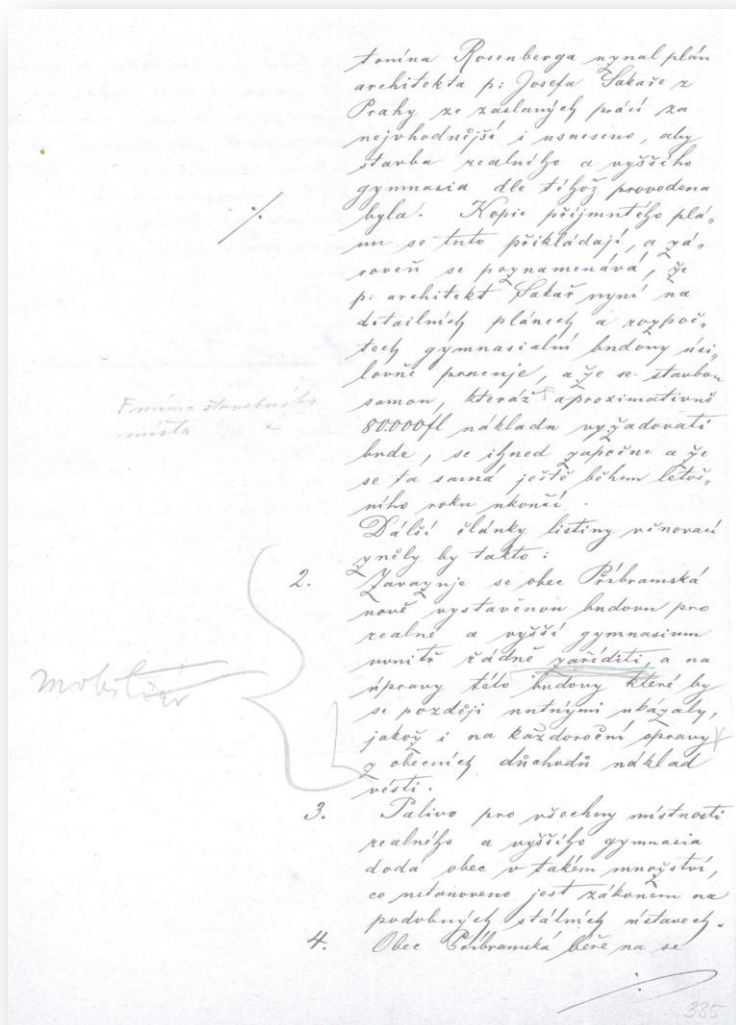 tonína Rosenberga uznal plán
architekta p: Josefa Sakaře z
Prahy ze zaslaných prací za
nejvhodnější i usneseno, aby
stavba realného a vyššího
gymnasia dle téhož provedena
byla. Kopie přijmutého plá„
nu se tuto přikládají, a zá„
roveň se poznamenává, že
p: architekt Sakař nyní na
detailních plánech a rozpoč„
tech gymnasialní budovy úsi„
lovně pracuje, a že se stavbou
samou, kteráž aproximativně
F mimo stavebního
místa
80.000 fl nákladu vyžadovati
bude, se ihned započne a že
se ta samá ještě během letoš„
ního roku ukončí.
Další články listiny věnovací
zněly by takto:
2. Zavazuje se obec Příbramská
nově vystavěnou budovu pro
realné a vyšší gymnasium
uvnitř řádně zaříditi, a na
mobiliář
úpravy této budovy které by
se později nutnými ukázaly,
jakož i na každoroční opravy
z obecních důchodů náklad
vésti.
3. Palivo pro všechny místnosti
realného a vyššího gymnasia
dodá obec v takém množství,
co ustanoveno jest zákonem na
podobných státních ústavech.
4. Obec Příbramská béře na se
335